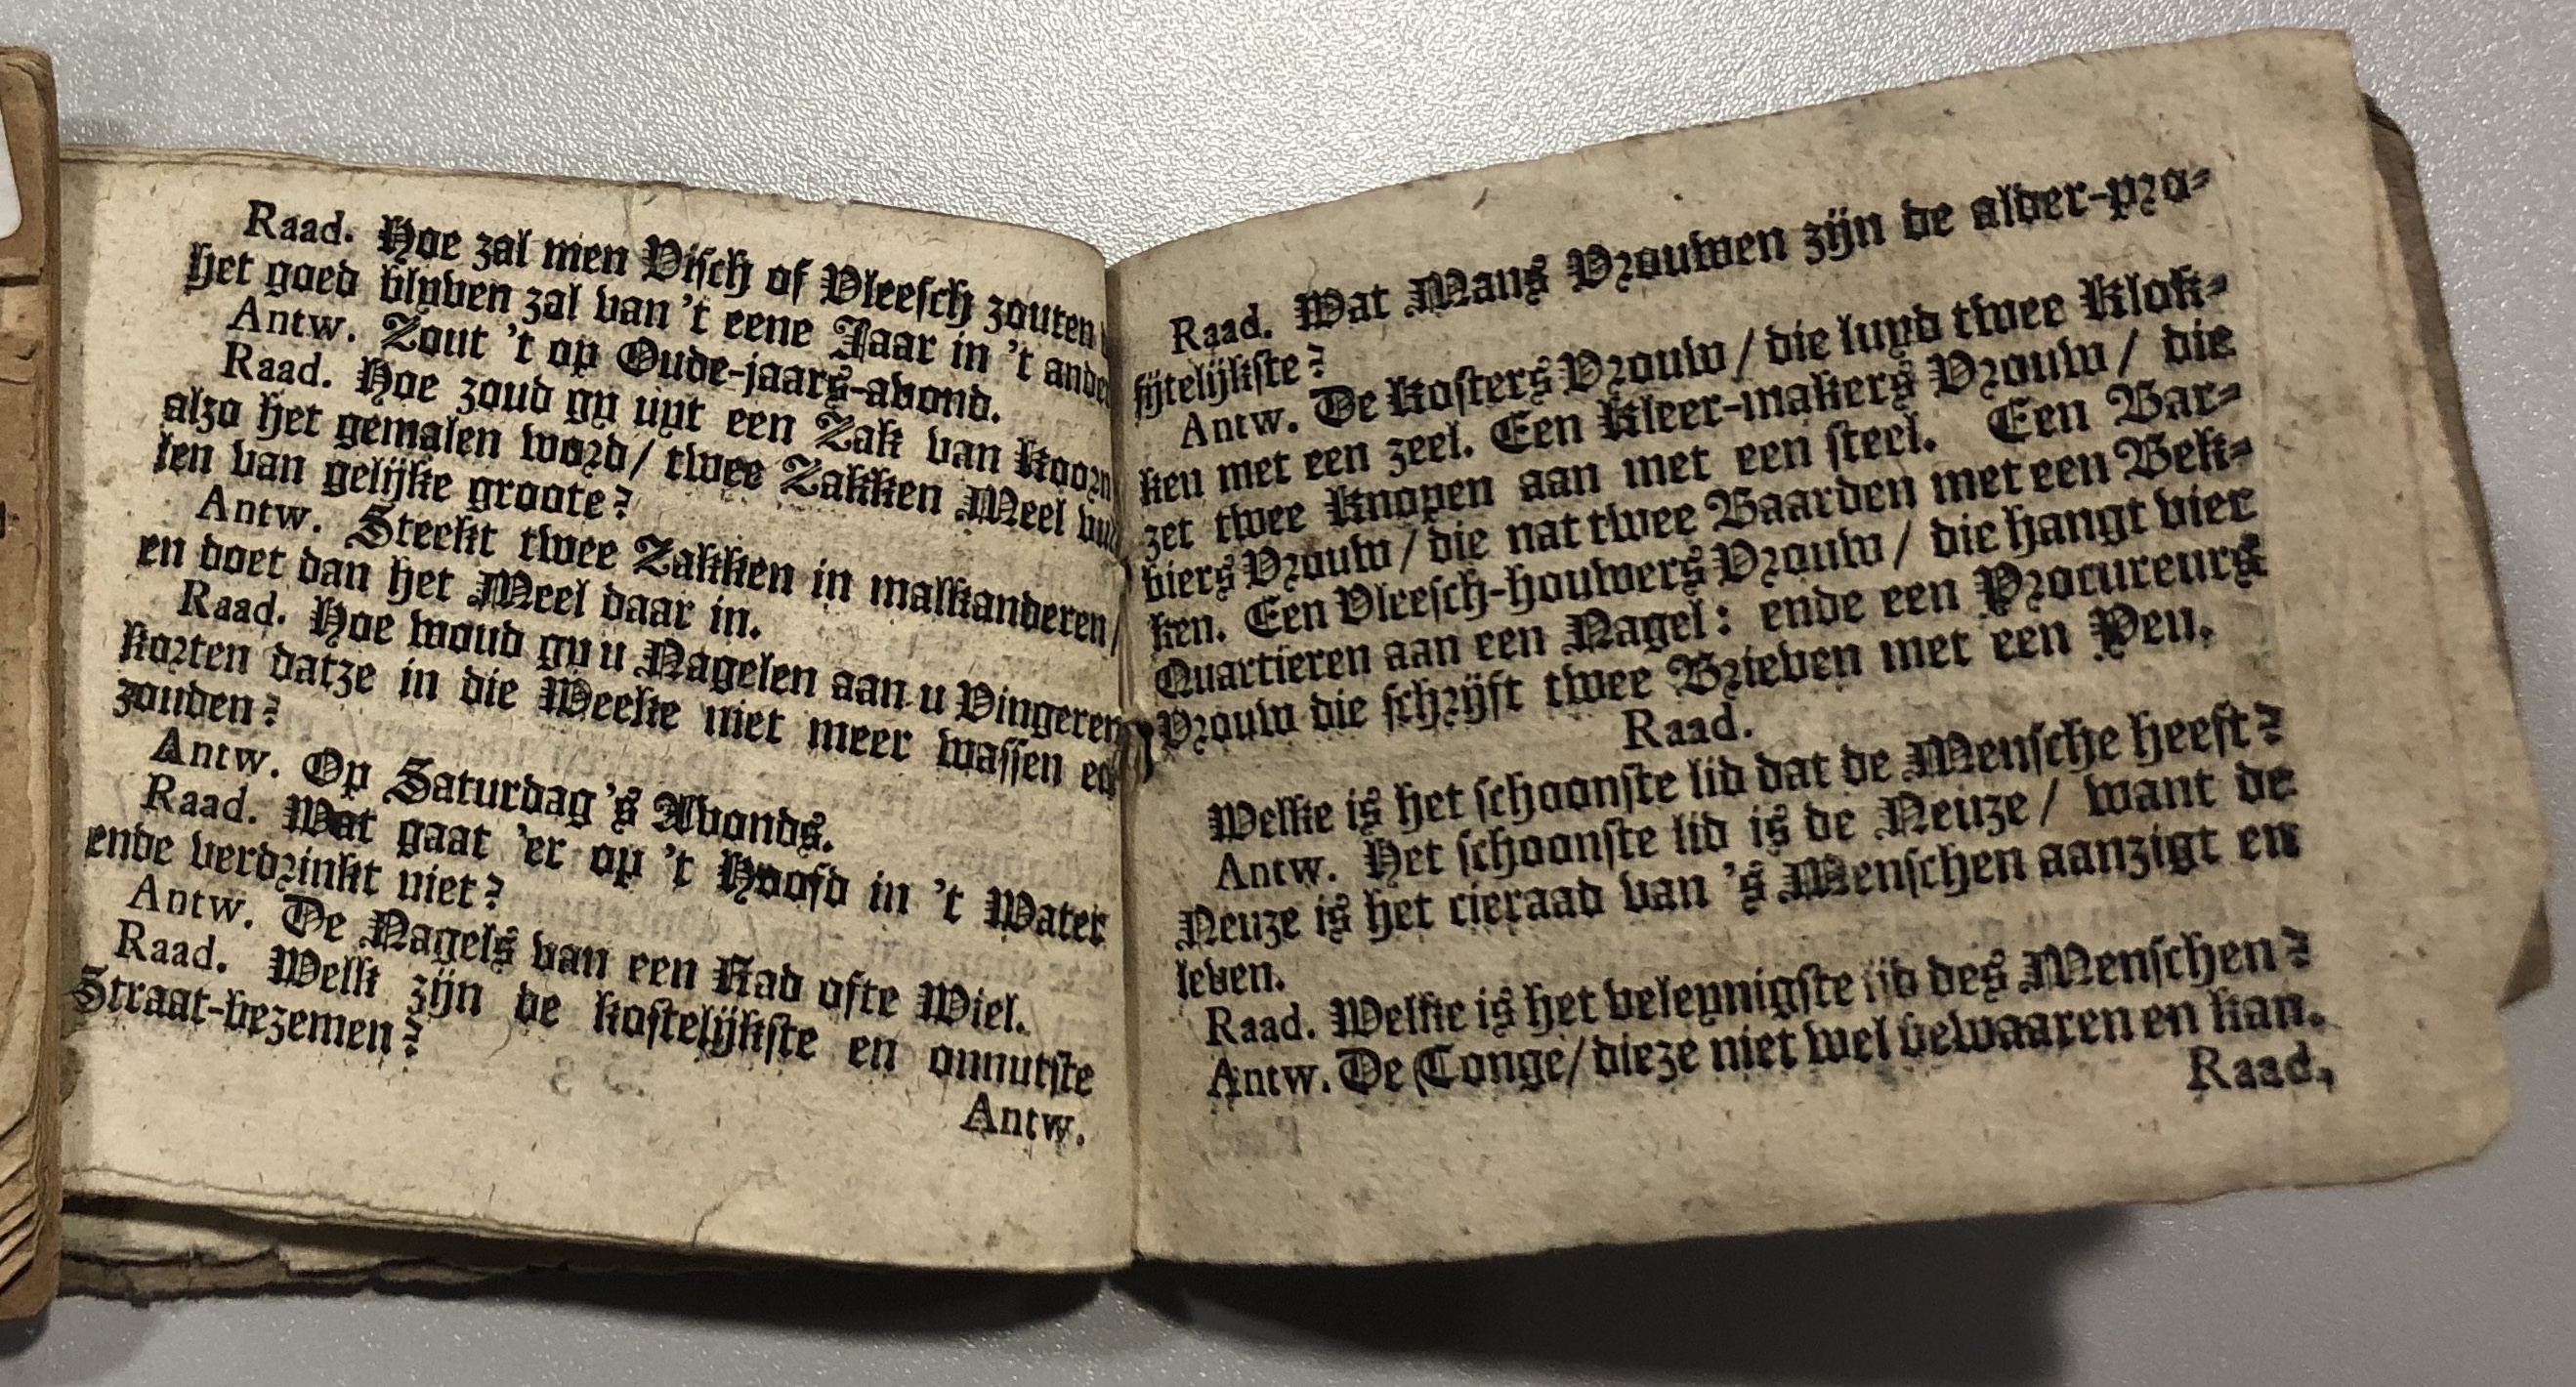 Raad. Hoe zal men Visch of Vleesch zouten
het goed blyven zal van 't eene Jaar in 't ande
Antw. Zout 't op Oude-jaars-avond.
Raad. Hoe zoud gy uyt een Zak van Koorn
alzo het gemalen word / twee Zakken Meel vul
len van gelijke groote?
Antw. Steekt twee Zakken in malkanderen /
en doet dan het Meel daar in.
Raad. Hoe woud gy u Nagelen aan u Vingeren
korten datze in die Weeke niet meer wassen en
zouden?
Antw. Op Saturdag 's Avonds.
Raad. Wat gaat 'er op 't Hoofd in 't Water
ende verdrinkt niet?
Antw. De Nagels van een Rad ofte Wiel.
Raad. Welk zijn de kostelijkste en onnutste
Straat-bezemen?
Antw.
Raad. Wat Mans Vrouwen zijn de alder-pro-
fijtelijkste?
Antw. De Kosters Vrouw / die luyd twee Klok-
ken met een zeel. Een Kleer-makers Vrouw / die
zet twee Knopen aan met een steel. Een Bar-
biers Vrouw / die nat twee Baarden met een Bek-
ken. Een Vleesch-houwers Vrouw / die hangt vier
Quartieren aan een Nagel: ende een Procureurs
Vrouw die schrijft twee Brieven met een Pen.
Raad.
Welke is het schoonste lid dat de Mensche heeft?
Antw. Het schoonste lid is de Neuze / want de
Neuze is het cieraad van 's Menschen aanzigt en
leven.
Raad. Welke is het veleynigste lid des Menschen?
Antw. De Tonge / dieze niet wel bewaaren en kan.
Raad,